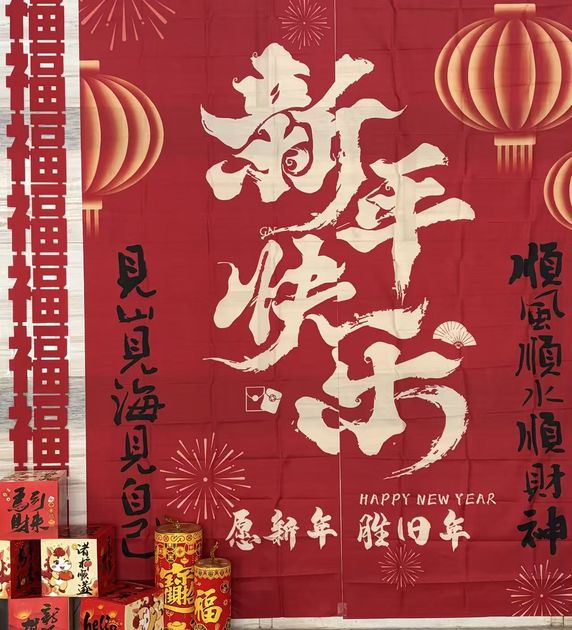 福福福福福福福
新年
快乐
見山見海見自己
順風順水順財神
HAPPY NEW YEAR
愿新年 胜旧年
馬到
財来
hello
福